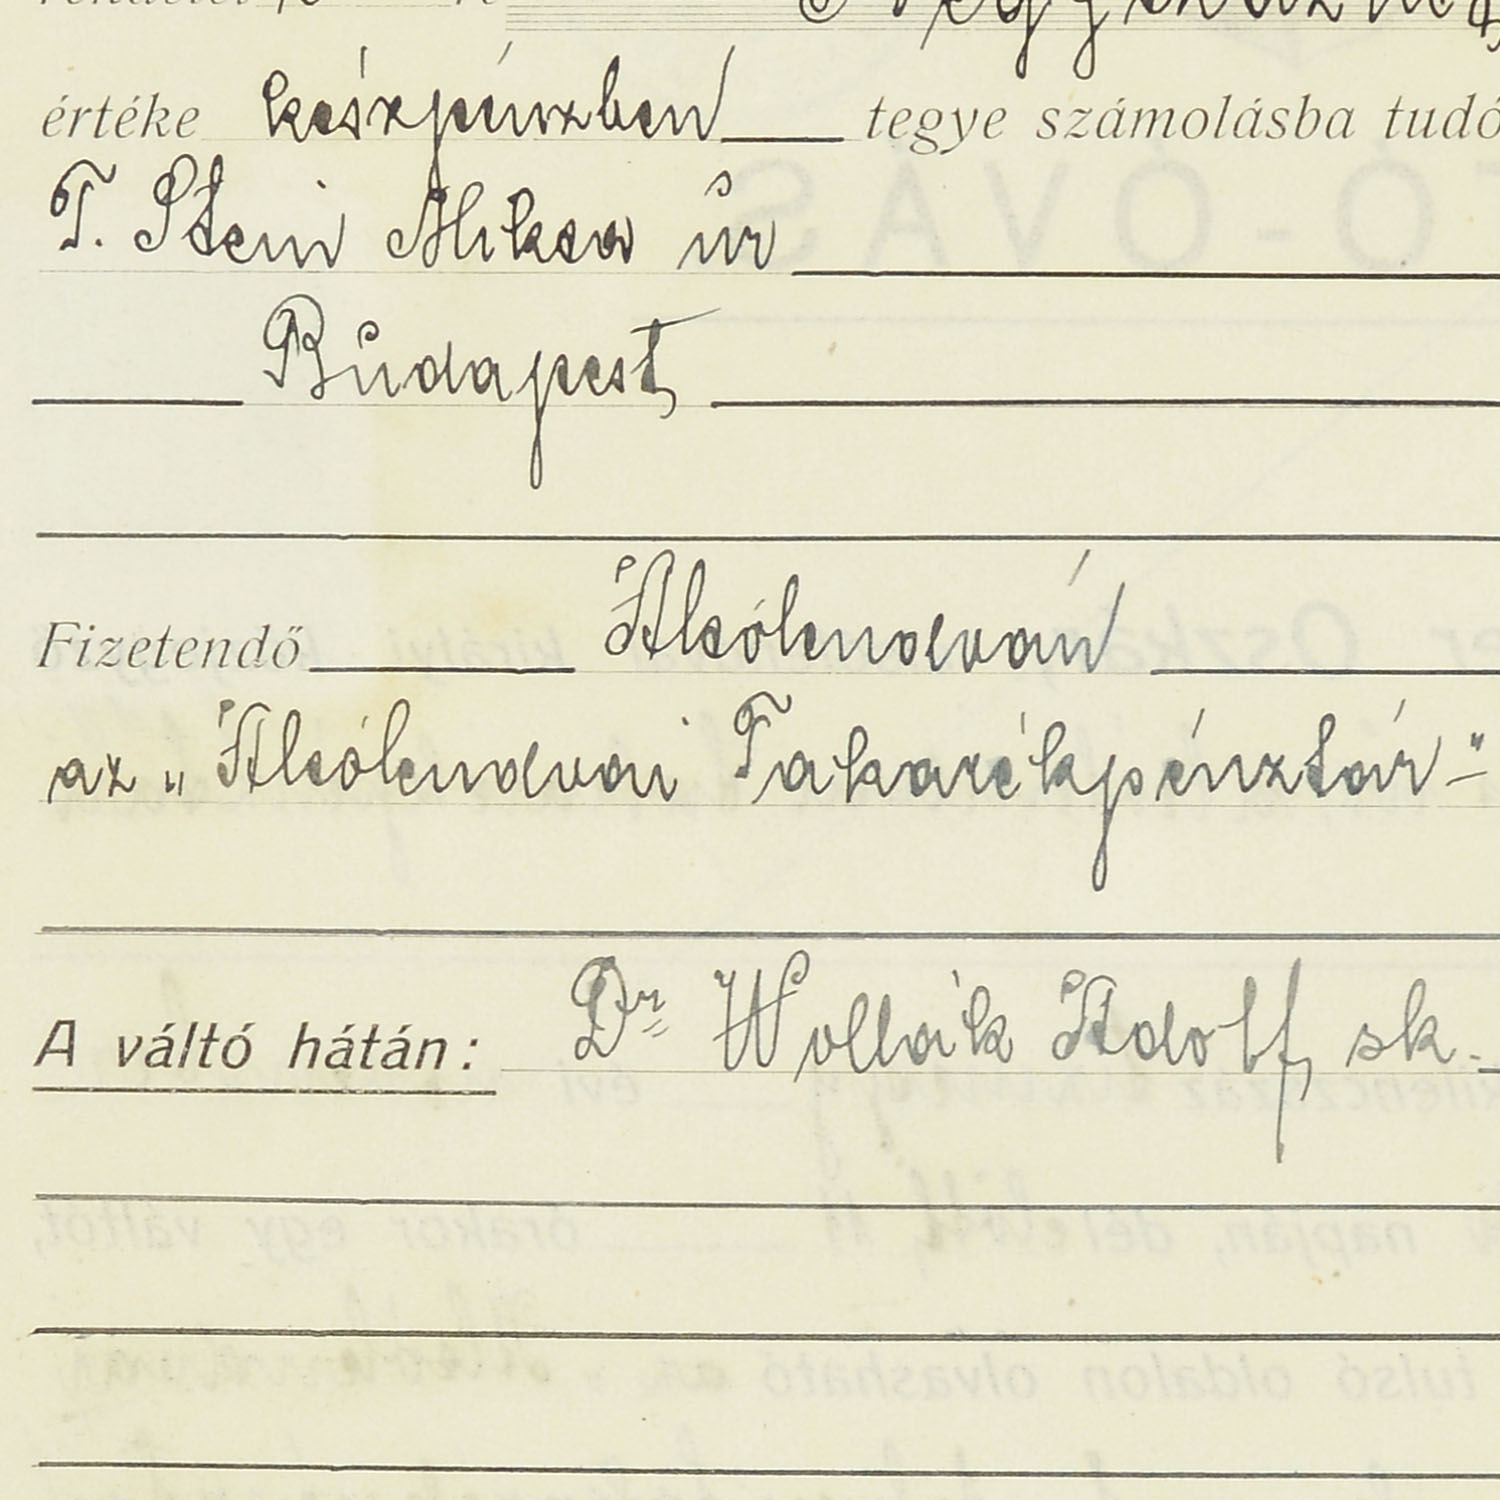 értéke készpénzben tegye számolásba tudó
T. Stein Miksa úr
Budapest,
Fizetendő Alsólendván
az „Alsólendvai Takarékpénztár-"
A váltó hátán: Dr Wollák Adolf, sk.